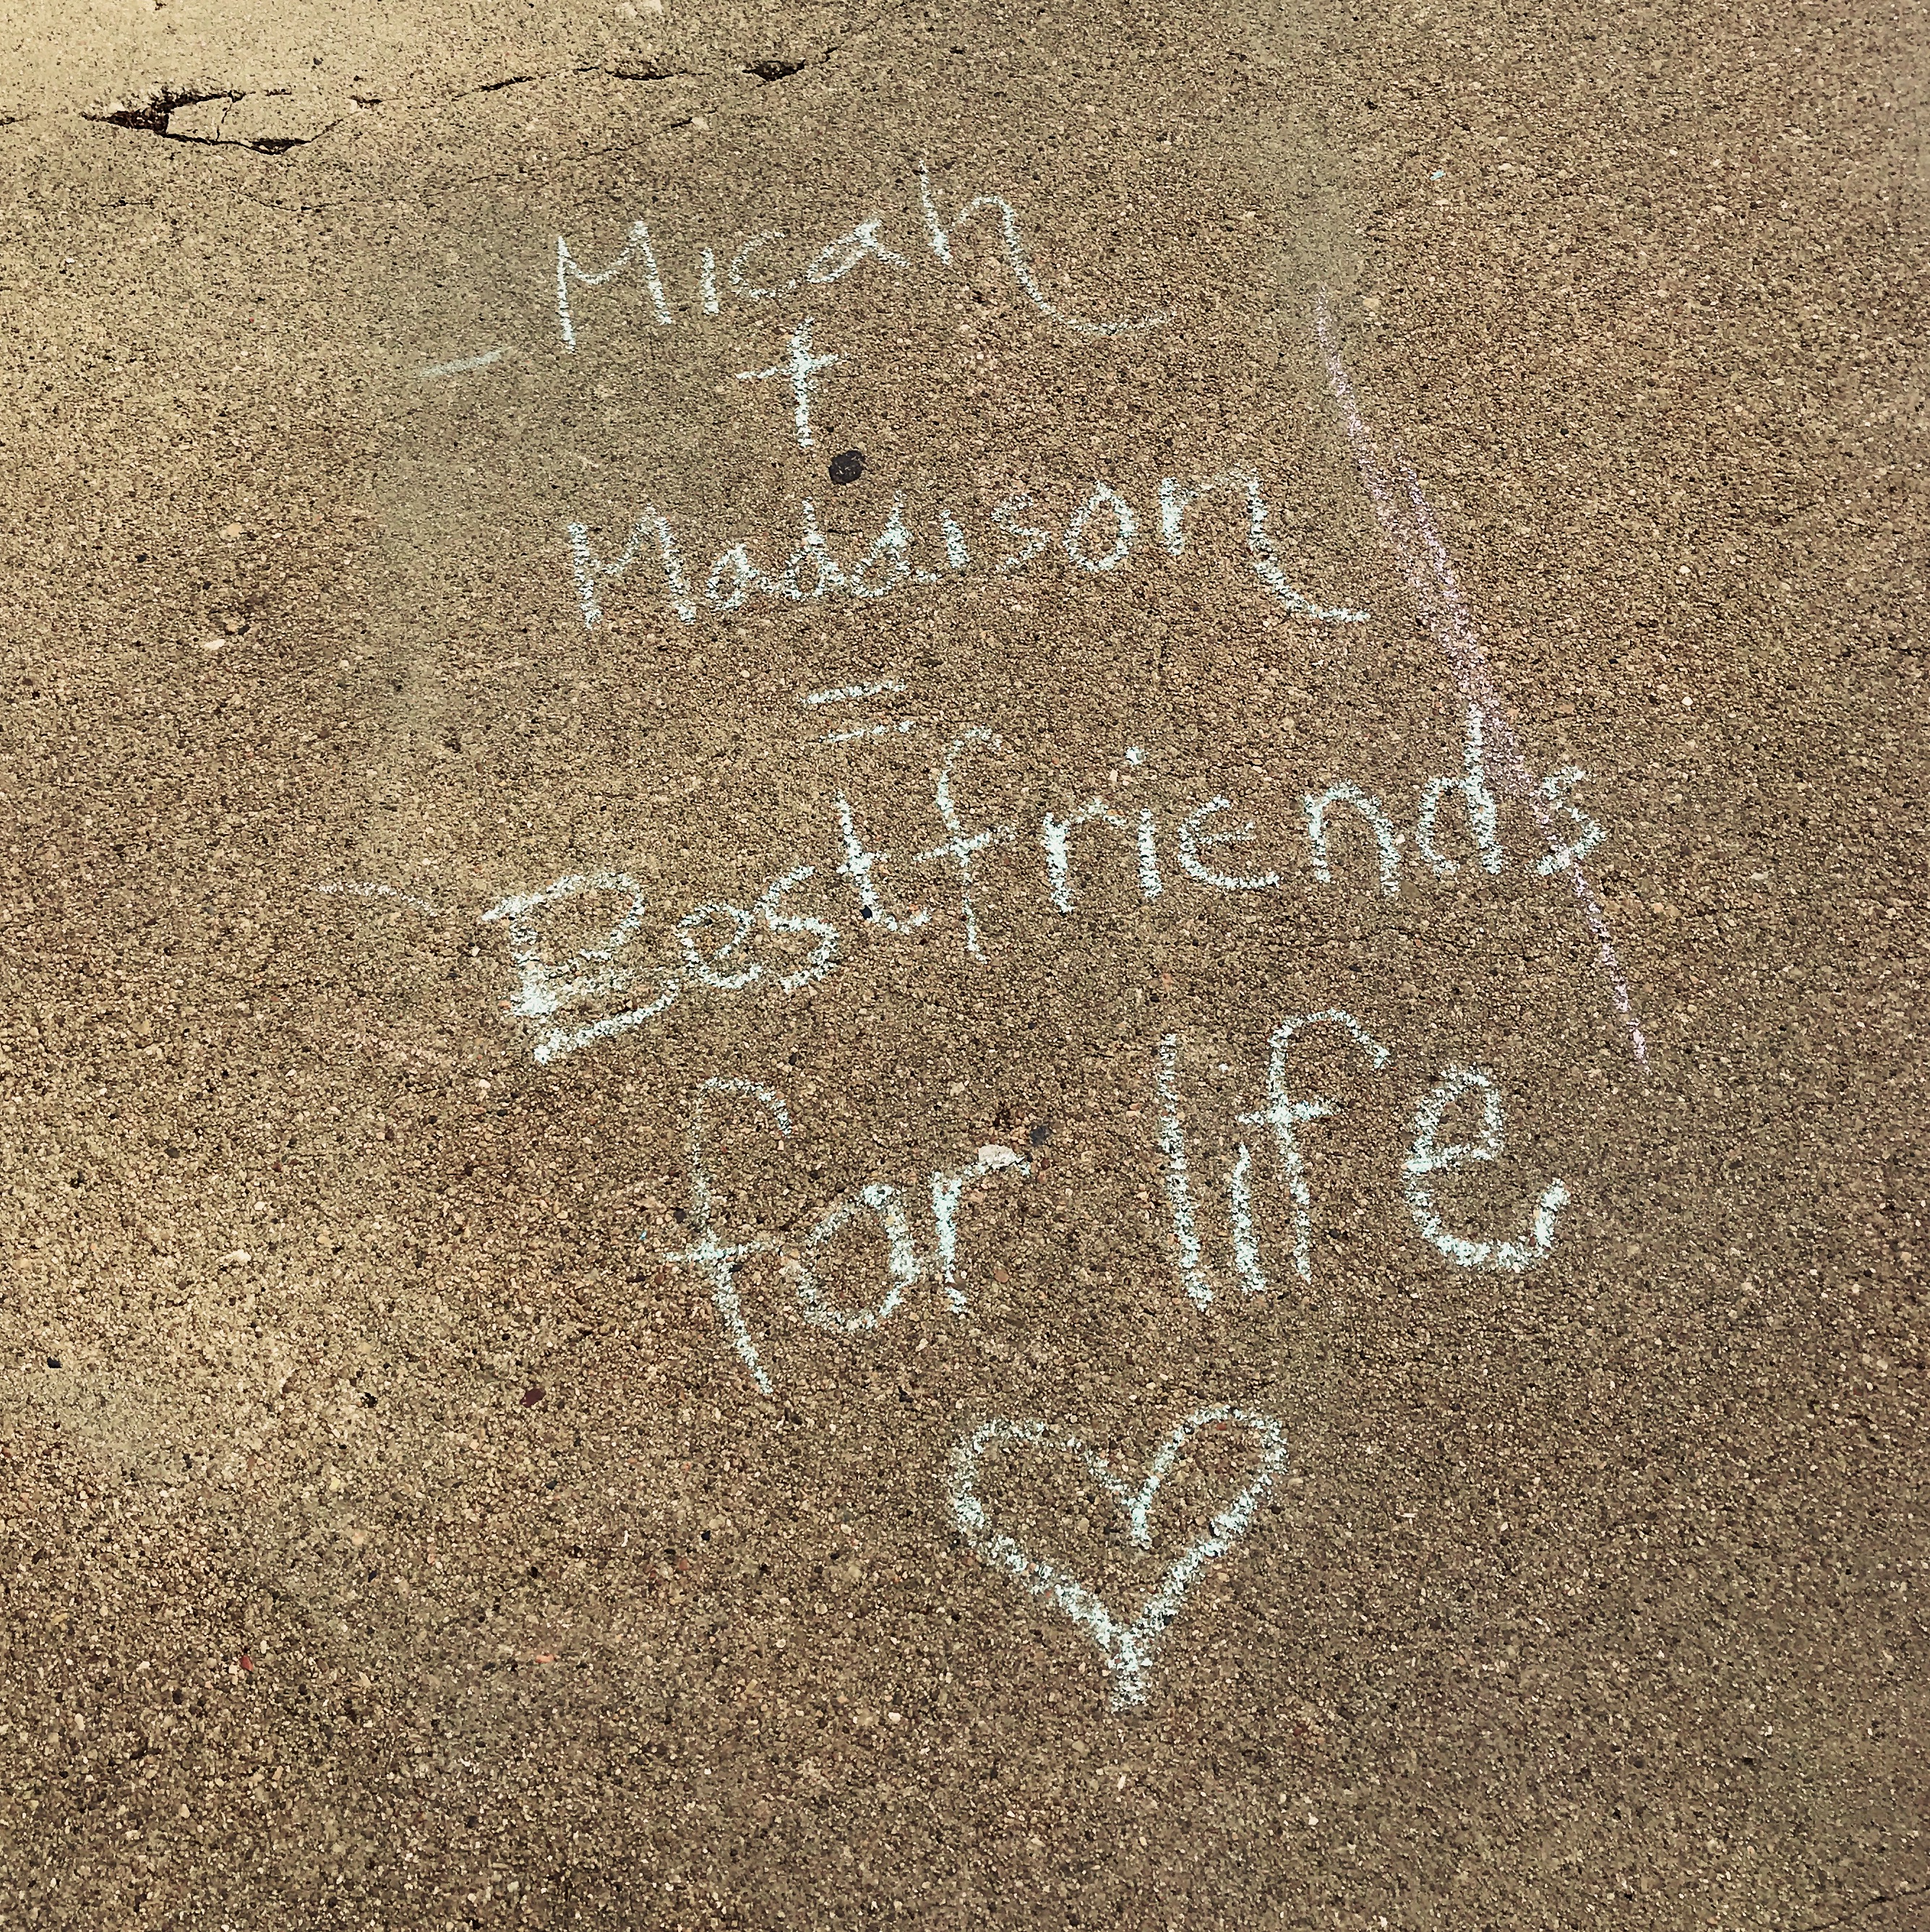 Micah
+
Maddison
=
Bestfriends
for life